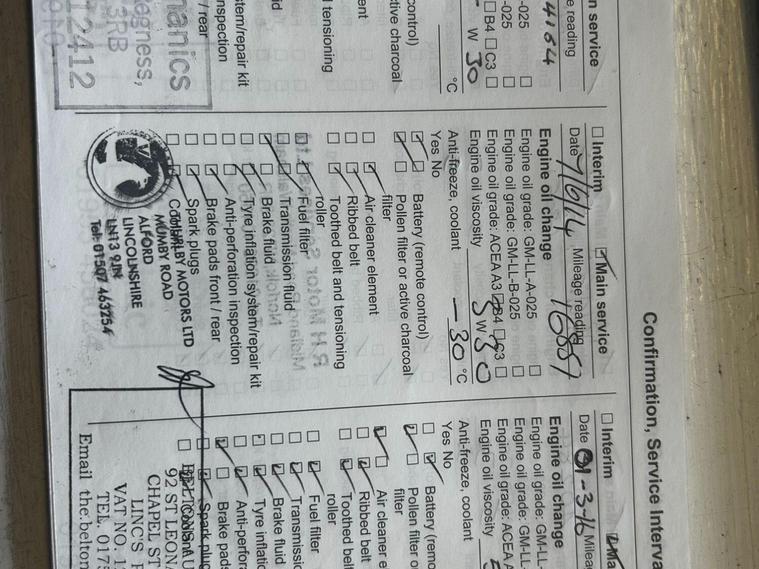 Confirmation, Service Interva
n service
e reading
4164
-025
-025
B4 C3
W 30
°C
control)
ctive charcoal
ent
tensioning
id
tem/repair kit
nspection
/ rear
nanics
egness,
3RB
12412
Interim Main service
Date 7/6/14 Mileage reading 16887
Engine oil change
Engine oil grade: GM-LL-A-025
Engine oil grade: GM-LL-B-025
Engine oil grade: ACEA A3 B4 C3
Engine oil viscosity 5 W 30
Anti-freeze, coolant -30 °C
Yes No
Battery (remote control)
Pollen filter or active charcoal
filter
Air cleaner element
Ribbed belt
Toothed belt and tensioning
roller
Fuel filter
Transmission fluid
Brake fluid
Tyre inflation system/repair kit
Anti-perforation inspection
Brake pads front / rear
Spark plugs
MOTORS LTD
MUMBY ROAD
ALFORD
LINCOLNSHIRE
LN13 9JN
Tel: 01507 463254
Interim Ma
Date 01-3-16 Mileag
Engine oil change
Engine oil grade: GM-LL-
Engine oil grade: GM-LL-
Engine oil grade: ACEA A
Engine oil viscosity 5
Anti-freeze, coolant
Yes No
Battery (remo
Pollen filter o
filter
Air cleaner e
Ribbed belt
Toothed belt
roller
Fuel filter
Transmissio
Brake fluid
Tyre inflatio
Anti-perfora
Brake pads
Spark plug
92 ST LEONA
CHAPEL ST
LINC'S P
VAT NO. 1
TEL. 0175
Email the.belton